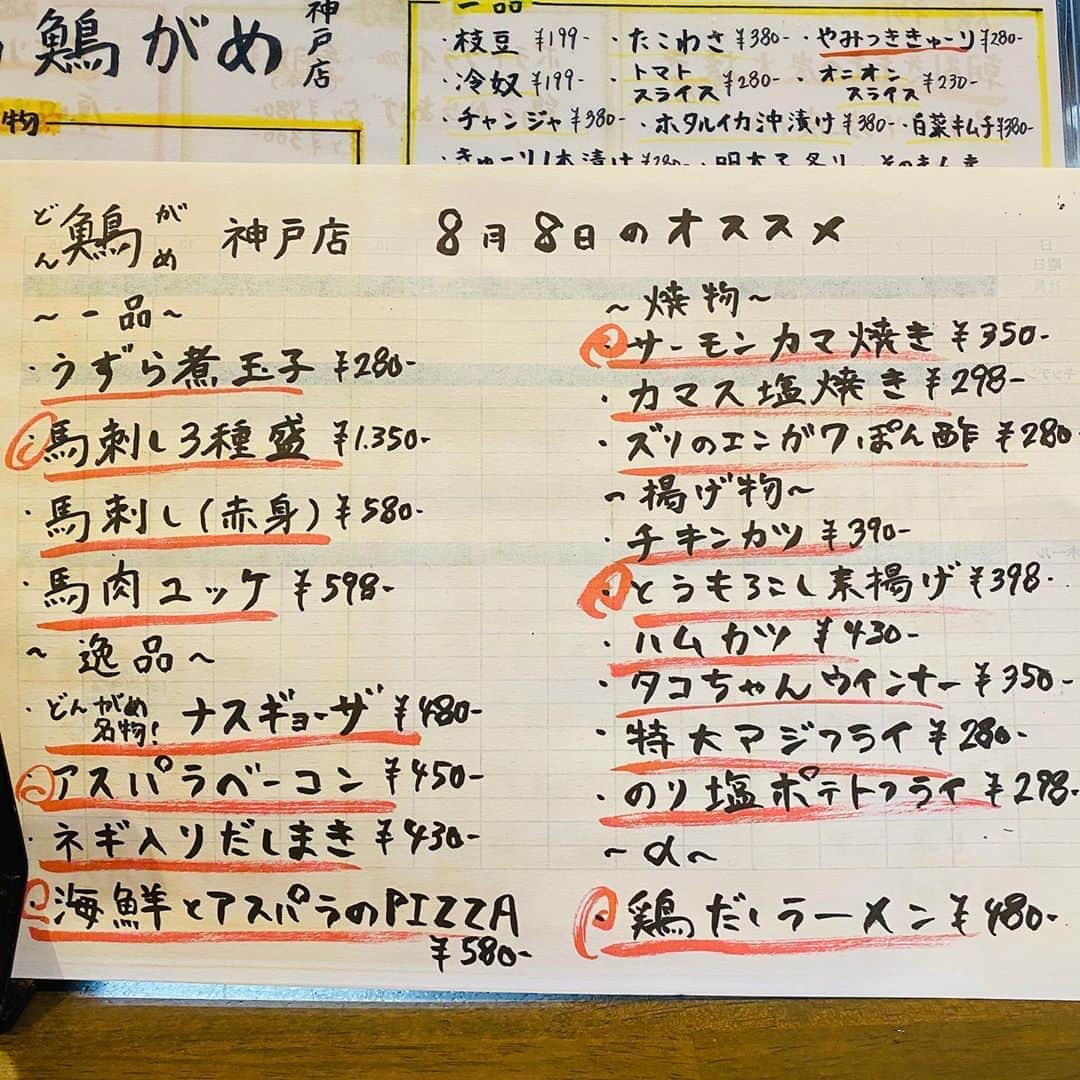 鷠がめ 神戸店
物
一品
・枝豆 ¥199- ・たこわさ ¥380- ・やみつききゅーり ¥280-
・冷奴 ¥199- ・トマトスライス ¥280- ・オニオンスライス ¥230-
・チャンジャ ¥380- ・ホタルイカ沖漬け ¥380- ・白菜キムチ ¥380-
・きゅーり1本漬け ¥280-
どん がめ 神戸店 8月8日のオススメ
~一品~
・うずら煮玉子 ¥280-
・馬刺し3種盛 ¥1.350-
・馬刺し(赤身) ¥580-
・馬肉ユッケ ¥598-
~逸品~
・どんがめ名物! ナスギョーザ ¥480-
・アスパラベーコン ¥450-
・ネギ入りだしまき ¥430-
・海鮮とアスパラのPIZZA
¥580-
~焼物~
・サーモンカマ焼き ¥350-
・カマス塩焼き ¥298-
・ズリのエンガワぽん酢 ¥280-
~揚げ物~
・チキンカツ ¥390-
・とうもろこし素揚げ ¥398-
・ハムカツ ¥430-
・タコちゃんウインナー ¥350-
・特大アジフライ ¥280-
・のり塩ポテトフライ ¥298-
~α~
・鶏だしラーメン ¥480-